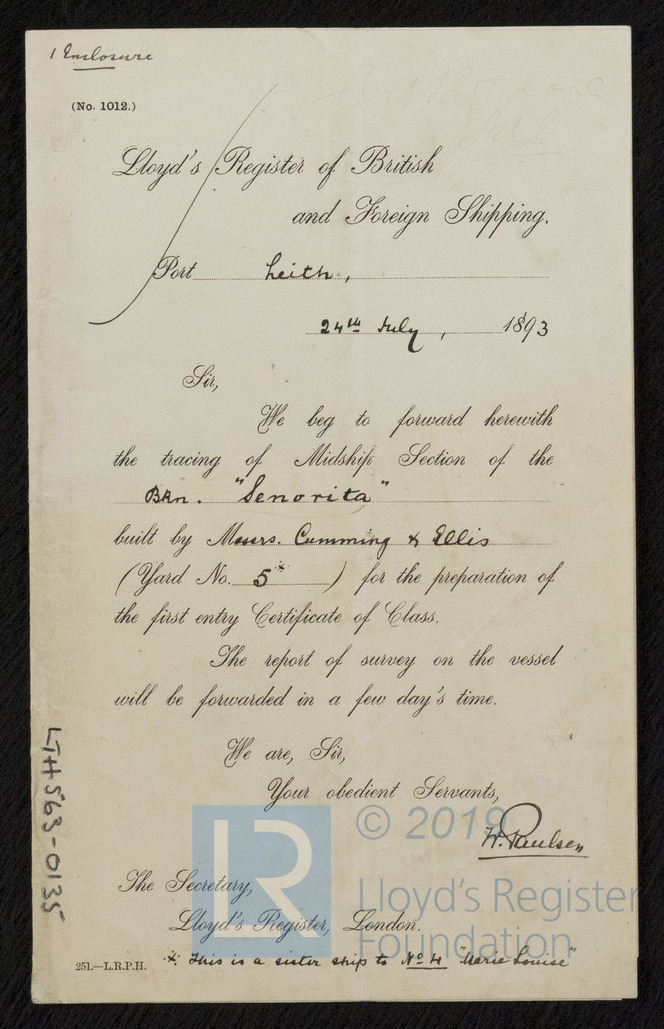 1 Enclosure
(No. 1012.)
Lloyd's Register of British
and Foreign Shipping.
Port Leith,
24th July, 1893
Sir,
We beg to forward herewith
the tracing of Midship Section of the
Bkn. "Senorita"
built by Messrs. Cumming & Ellis
(Yard No. 5*) for the preparation of
the first entry Certificate of Class.
The report of survey on the vessel
will be forwarded in a few day's time.
We are, Sir,
Your obedient Servants,
W. Paulsen
The Secretary,
Lloyd's Register, London.
251.—L.R.P.H.
* This is a sister ship to No 4 "Marie Louise"
LTH563-0135
LR
© 2019
Lloyd's Register
Foundation